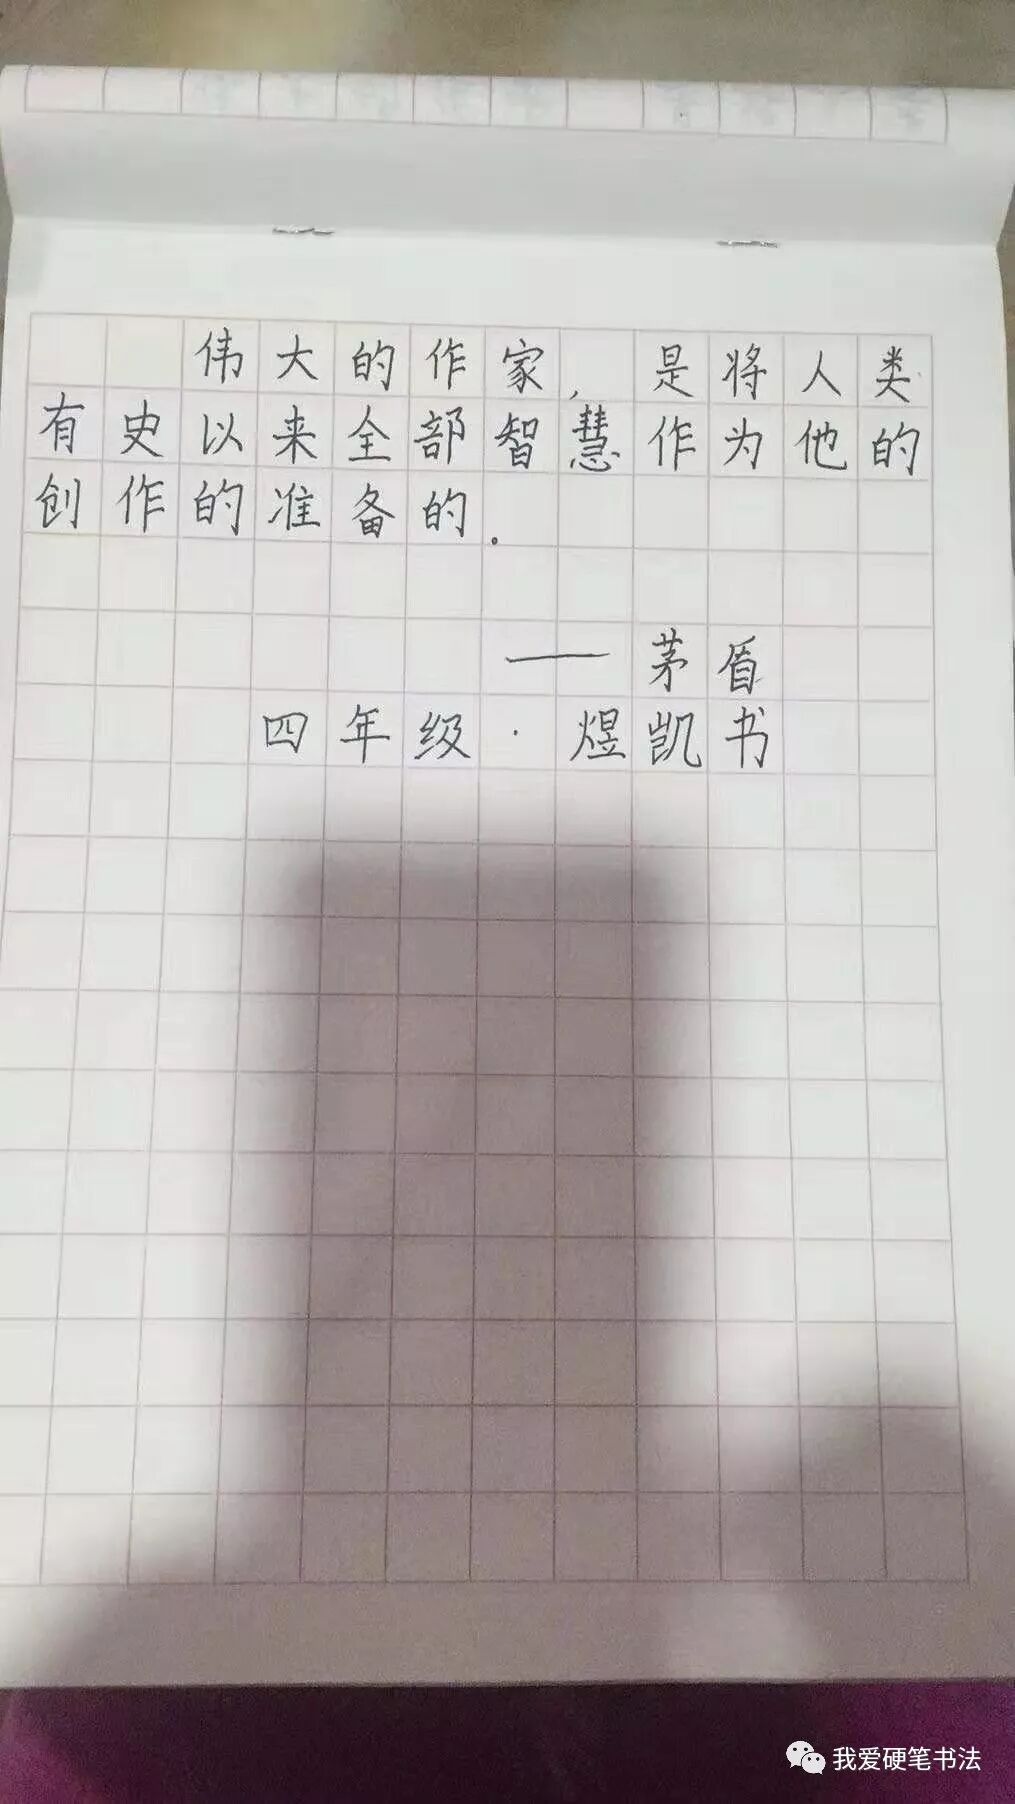 伟大的作家,是将人类
有史以来全部智慧作为他的
创作的准备的.
——茅盾
四年级·煜凯书
我爱硬笔书法